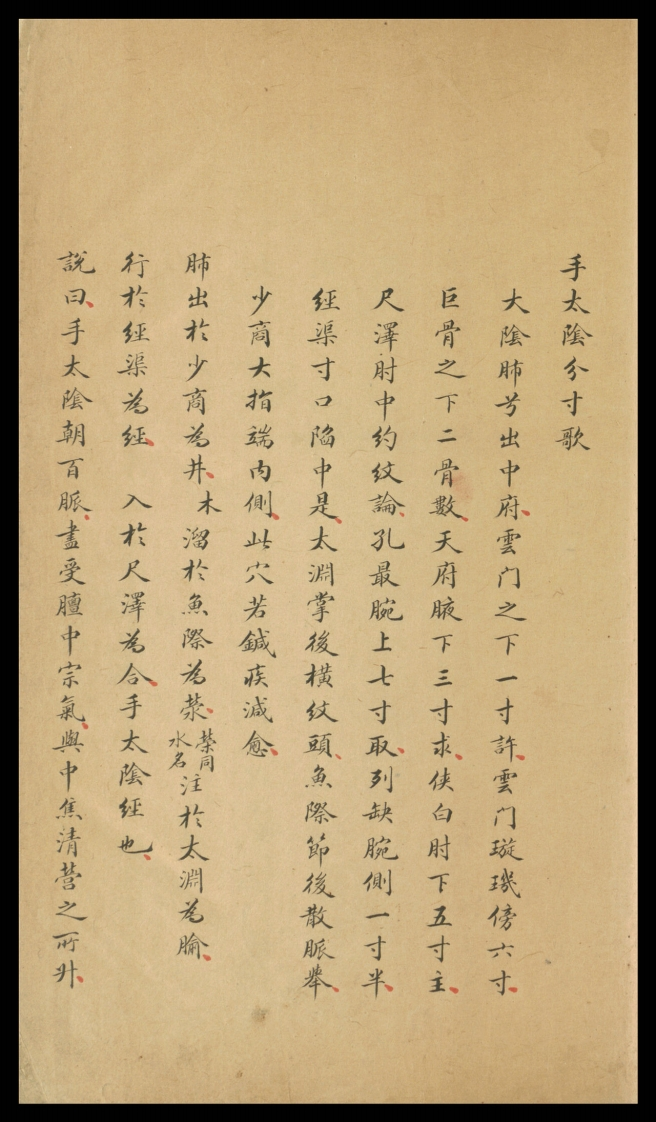 手太陰分寸歌
大陰肺兮出中府雲门之下一寸許雲门璇璣傍六寸
巨骨之下二骨數天府腋下三寸求侠白肘下五寸主
尺澤肘中約紋論孔最腕上七寸取列缺腕側一寸半
經渠寸口陷中是太淵掌後橫紋頭魚際節後散脈舉
少商大指端内側此穴若鍼疾減愈
肺出於少商為井木溜於魚際為滎滎同水名注於太淵為腧
行於經渠為經　入於尺澤為合手太陰經也
說曰手太陰朝百脈盡受膻中宗氣與中焦清營之所升